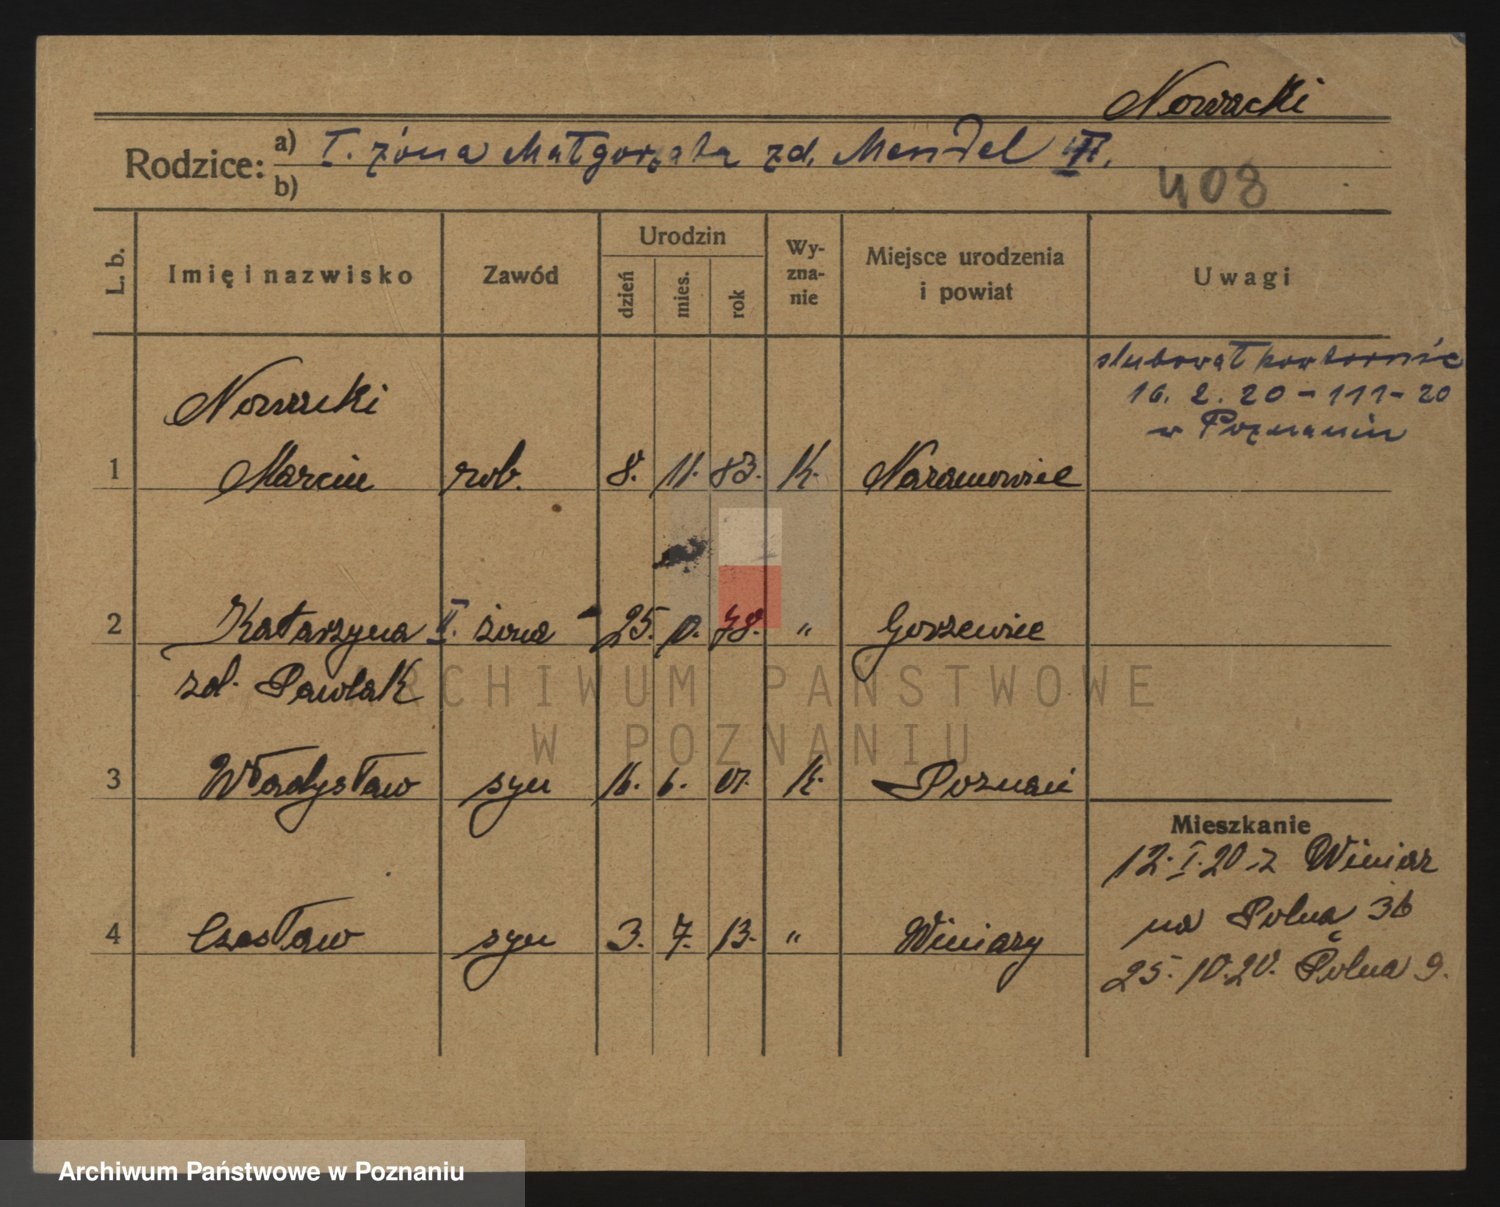 Nowacki
Rodzice: a) I. żona Małgorzata zd. Mendel
b)
408
L. b. Imię i nazwisko Zawód Urodzin dzień mies. rok Wy-zna-nie Miejsce urodzenia i powiat Uwagi
ślubował powtórnie
16. 2. 20 – 111 – 20
w Poznaniu
Nowacki
1 Marcin rob. 8. 11. 83. K. Naramowice
2 Katarzyna II. żona 25. 10. 78. " Gorzewice
zd. Pawlak
3 Władysław syn 16. 6. 07. K. Poznań
Mieszkanie
12. I. 20 z Winiar
na Polną 36
4 Czesław syn 3. 7. 13. " Winiary
25. 10. 20. Polna 9.
ARCHIWUM PAŃSTWOWE
W POZNANIU
Archiwum Państwowe w Poznaniu